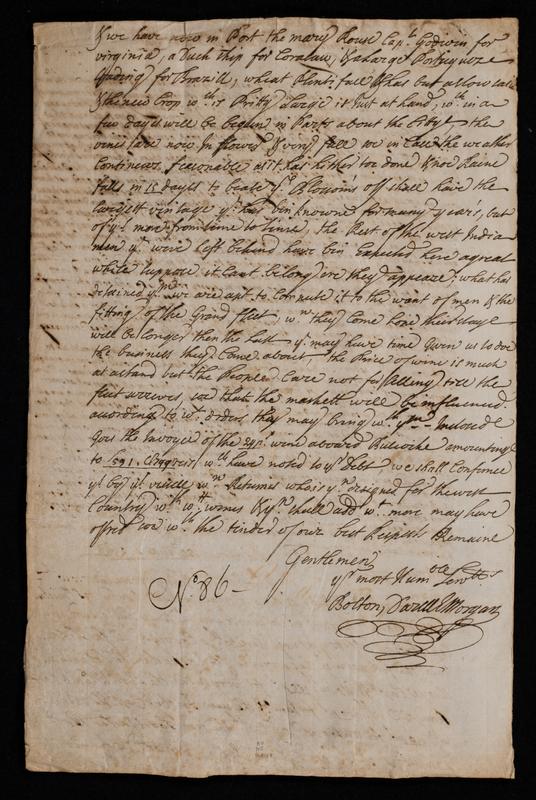 & we have now in Port the mary Rouse Capt. Godwin for
virginia, a Duch Ship for Coralaw, & a large Portuguze
for Brazill, wheat Plentifull & has but a slow
& the new Crop wch. is Prity Large is Just at hand, wch. in a
few days will be begun in Parts about the City the
vines are now In flower & very full soe in Case the weather
Continues seasonable as it has hither too done & noe Raine
falls in 15 days to beate ye. Blossoms off shall have the
Largest vintage yt. has bin knowne for many years, but
of yt. more from time to time, the Rest of the west India
men yt. were left behind have bin Expected here a greal
while suppose it Cant be long ere they appeare what has
detained ym. we are apt to Compute it to the want of men & the
fitting of the Grand fleet, wn. they Come hope their stay
will be longer then the Last yt. may have time given us to doe
the business they Come about, the Price of wine is much
at a stand but the People Care not for selling till the
fleet arrives, soe that the markett will be influenced
according to wt. orders they may bring wth. ym. Inclosed
goes the Invoyce of the 29ps. wine aboard amounting
to wch. have noted to yr. Debt we shall Confirme
yt. by ye. vessell wn. Returnes who is yn. designed for the west
Country wth. wt. wines & yn. shall add wt. more may have
offred soe wth. the tender of our best Respects Remaine
Gentlemen
yr. most Humble Servts.
No. 86 -
Bolton, Darell & Morgan